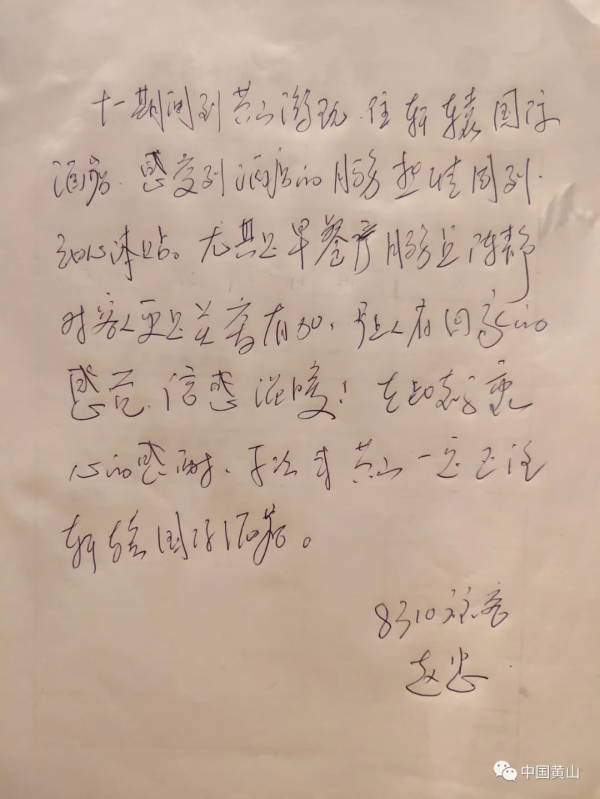 十一期间到黄山游玩.住轩辕国际
酒店.感受到酒店的服务热情周到.
细心体贴。尤其是早餐厅服务员陈静
对客人更是关爱有加,让人有回家的
感觉.倍感温暖!在此表示衷
心的感谢、下次来黄山一定还住
轩辕国际酒店。
8310 宾客
赵忠
中国黄山